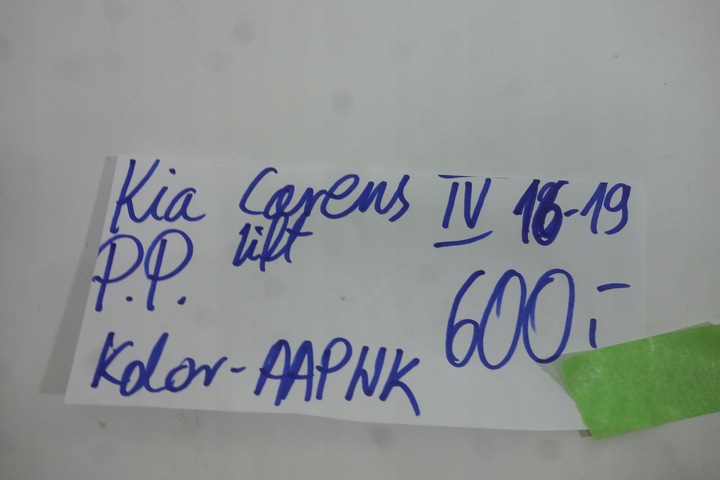 Kia Carens IV 16-19
P.P. lift
600,-
Kolor - AAPNK